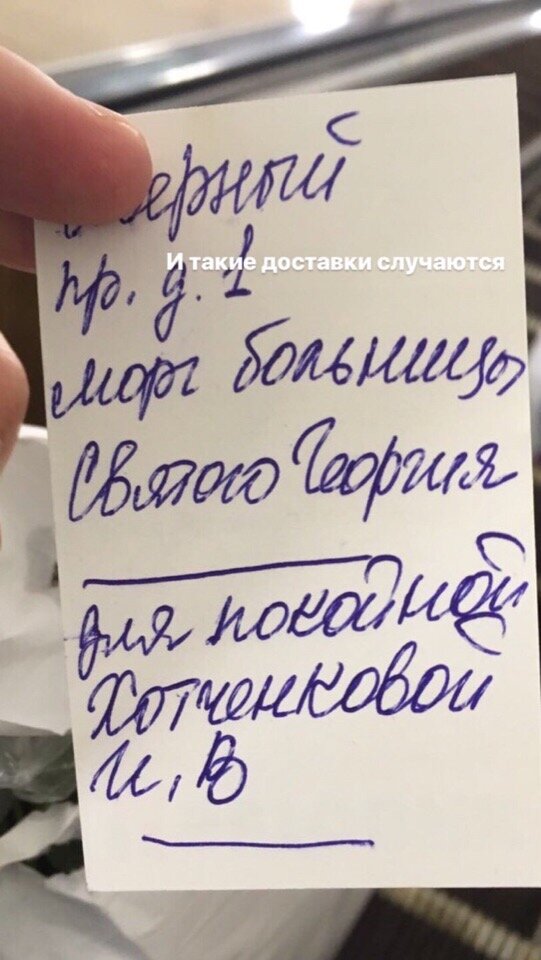 пр. д. 1
И такие доставки случаются
морг больницы
Святого Георгия
для покойной
Хотченковой
И, В